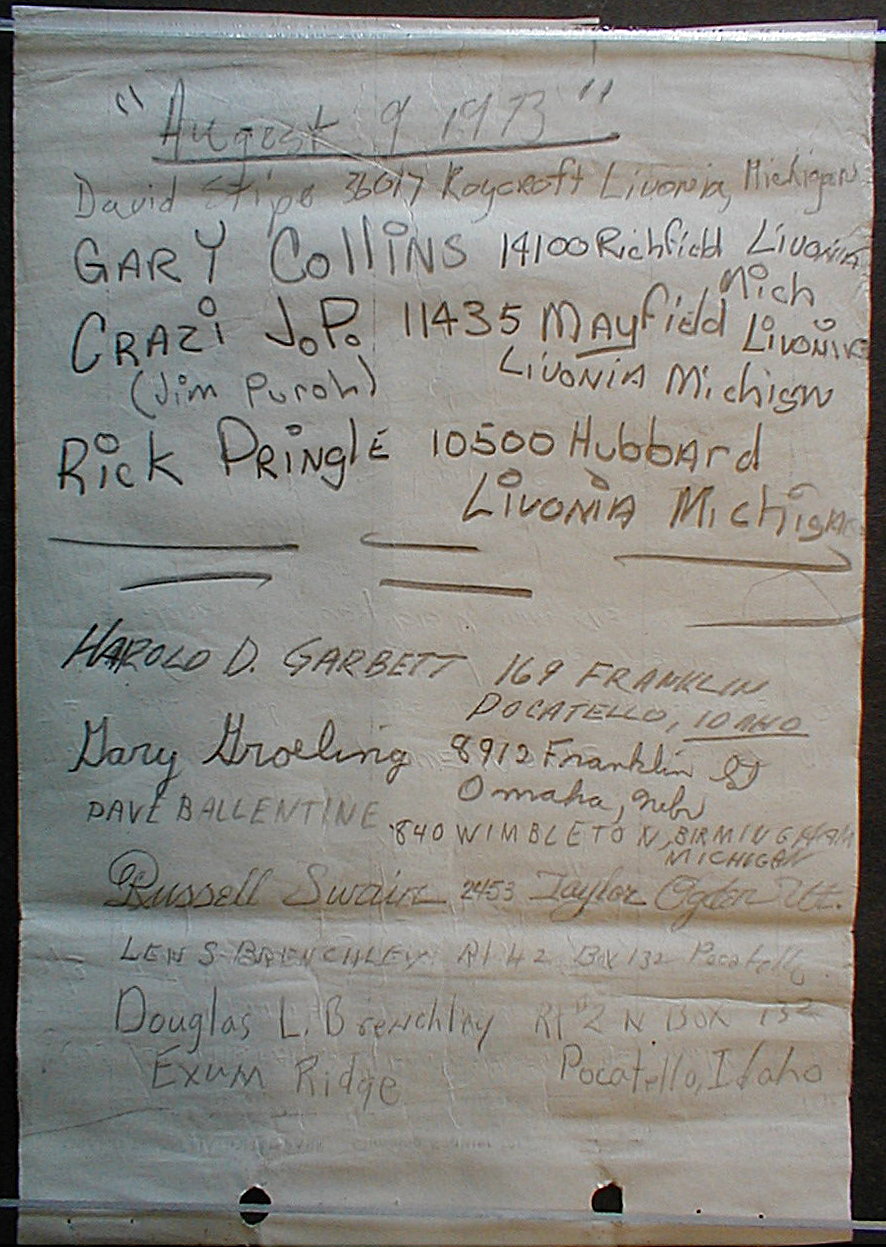 "August 9 1973"
David Stipe 36017 Roycroft Livonia, Michigan
GARY Collins 14100 Richfield Livonia
Mich
CRAZi J.P. 11435 Mayfield Livonia
(Jim Puroh) Livonia Michign
Rick Pringle 10500 Hubbard
Livonia Michigan
HAROLD D. GARBETT 169 FRANKLIN
POCATELLO, IDAHO
Gary Groeling 8912 Franklin St
Omaha, Nebr
DAVE BALLENTINE 840 WIMBLETON, BIRMINGHAM
MICHIGAN
Russell Swain 2453 Taylor Ogden Ut.
LEN S. BRENCHLEY Box 132 Pocatello
Douglas L. Brenchley Rt #2 N Box 132
Exum Ridge Pocatello, Idaho